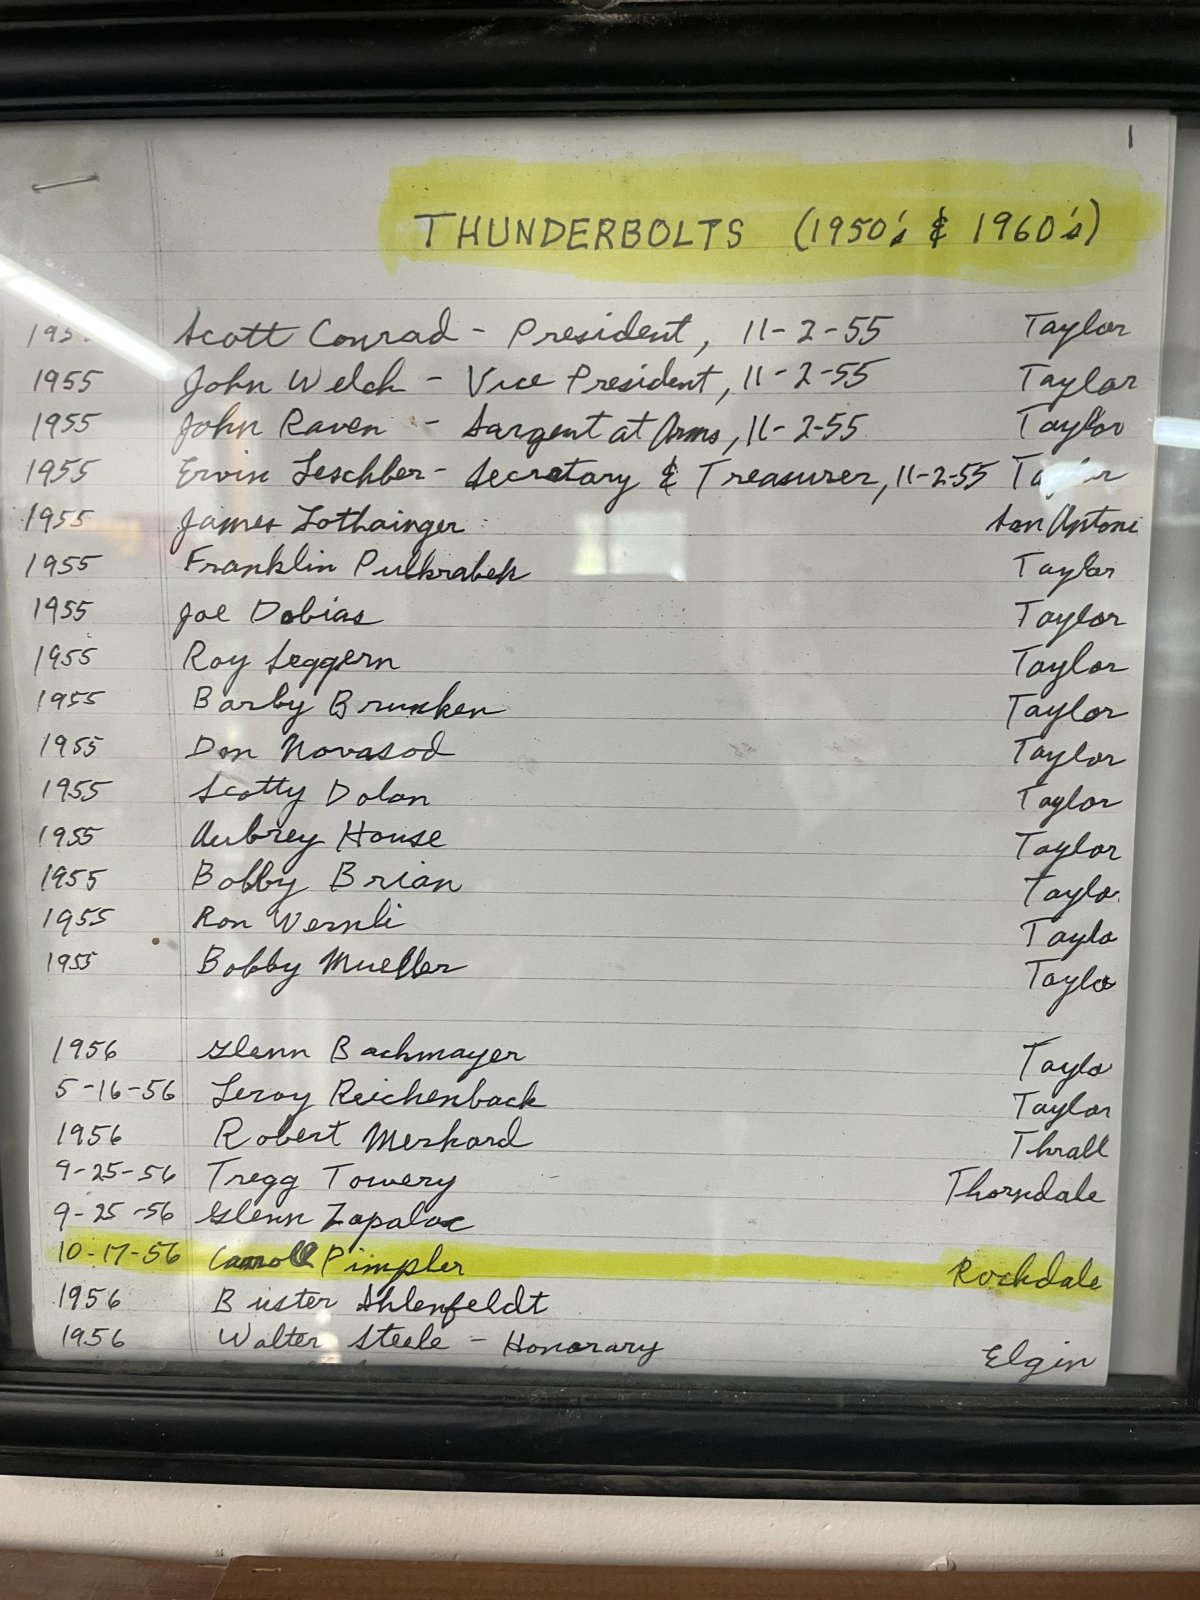 1
THUNDERBOLTS (1950's & 1960's)
Scott Conrad - President, 11-2-55 Taylor
1955 John Welch - Vice President, 11-2-55 Taylor
1955 John Raven - Sargent at Arms, 11-2-55 Taylor
1955 Ervin Leschber - Secretary & Treasurer, 11-2-55 Taylor
1955 James Lothainger San Antoni
1955 Franklin Pulkrabek Taylor
1955 Joe Dobias Taylor
1955 Roy Seggern Taylor
1955 Barby Brunken Taylor
1955 Don Novasod Taylor
1955 Scotty Dolan Taylor
1955 Aubrey House Taylor
1955 Bobby Brian Taylo
1955 Ron Wernli Taylo
1955 Bobby Mueller Taylo
1956 Glenn Bachmayer Taylo
5-16-56 Leroy Reichenback Taylor
1956 Robert Merkord Thrall
9-25-56 Tregg Towery Thorndale
9-25-56 Glenn Zapalac
10-17-56 Carroll Pimpler Rockdale
1956 Buster Ahlenfeldt
1956 Walter Steele - Honorary Elgin